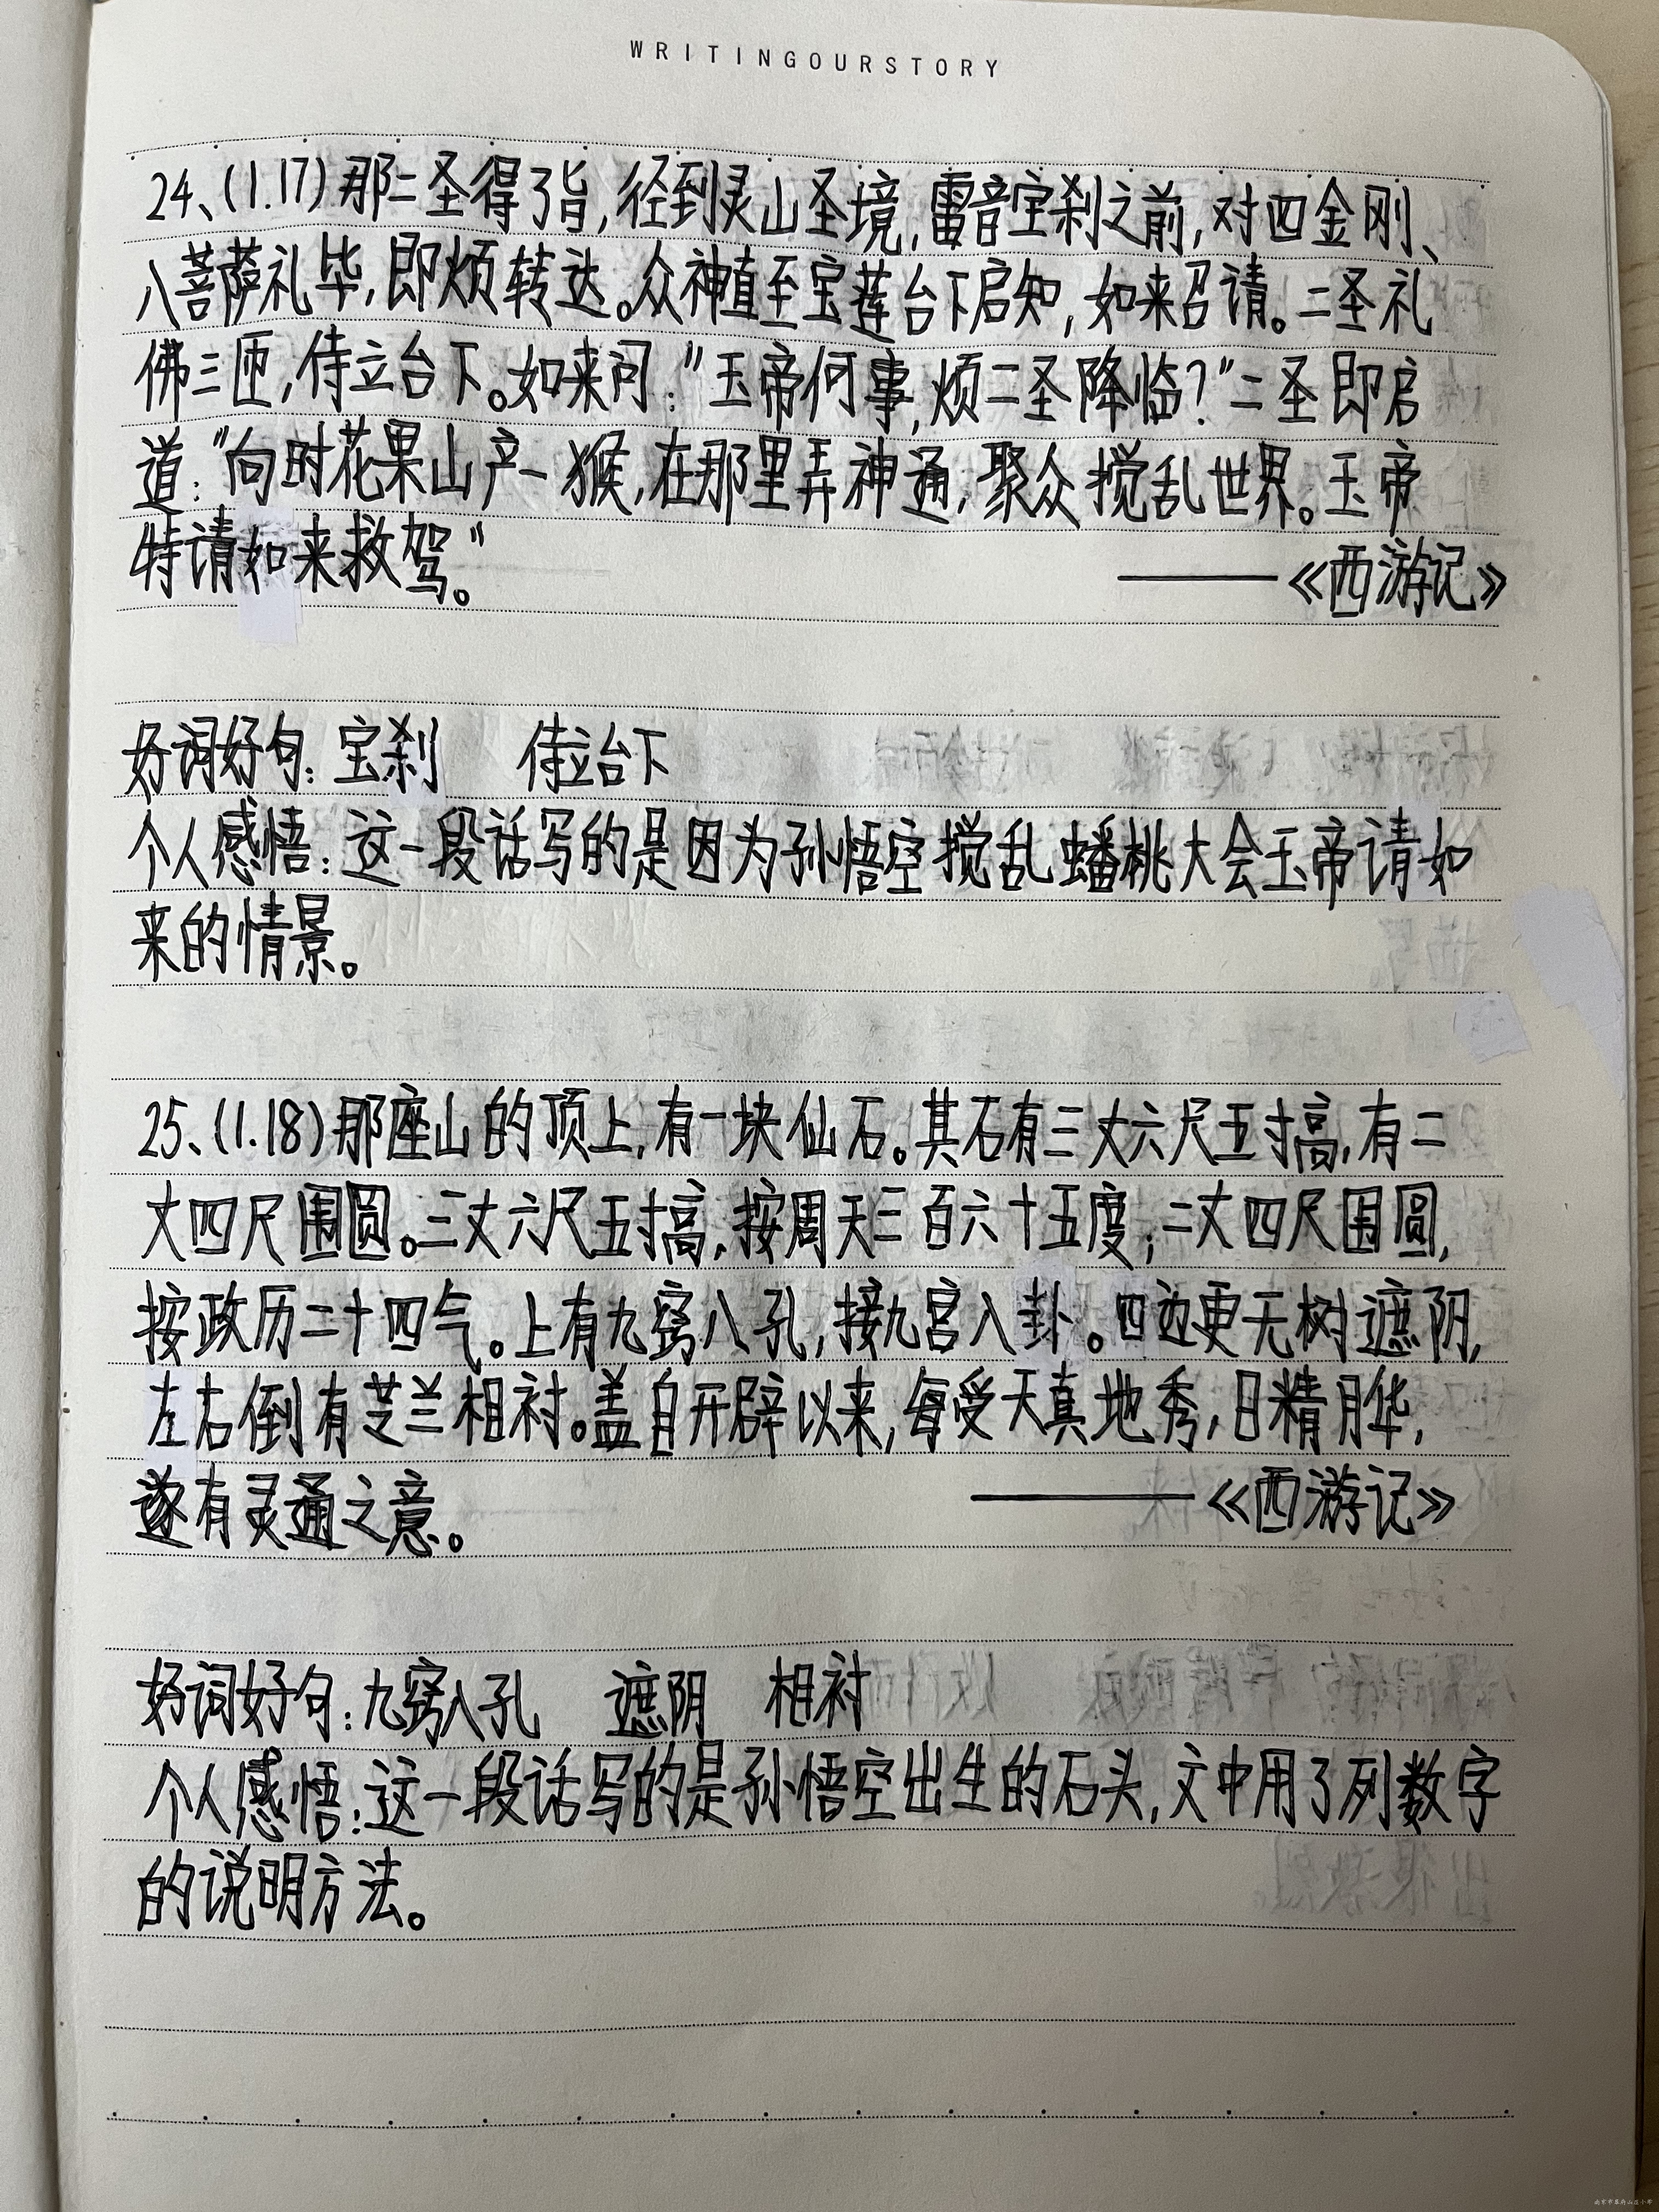 WRITINGOURSTORY
24、(1.17)那二圣得了旨,径到灵山圣境,雷音宝刹之前,对四金刚、
八菩萨礼毕,即烦转达。众神直至宝莲台下启知,如来召请。二圣礼
佛三匝,侍立台下。如来问:"玉帝何事,烦二圣降临?"二圣即启
道:"向时花果山产一猴,在那里弄神通,聚众搅乱世界。玉帝
特请如来救驾。"
——《西游记》
好词好句:宝刹 侍立台下
个人感悟:这一段话写的是因为孙悟空搅乱蟠桃大会玉帝请如
来的情景。
25、(1.18)那座山的顶上,有一块仙石。其石有三丈六尺五寸高,有二
丈四尺围圆。三丈六尺五寸高,按周天三百六十五度;二丈四尺围圆,
按政历二十四气。上有九窍八孔,接九宫八卦。四边更无树遮阴,
左右倒有芝兰相衬。盖自开辟以来,每受天真地秀,日精月华,
遂有灵通之意。 ——《西游记》
好词好句:九窍八孔 遮阴 相衬
个人感悟:这一段话写的是孙悟空出生的石头,文中用了列数字
的说明方法。